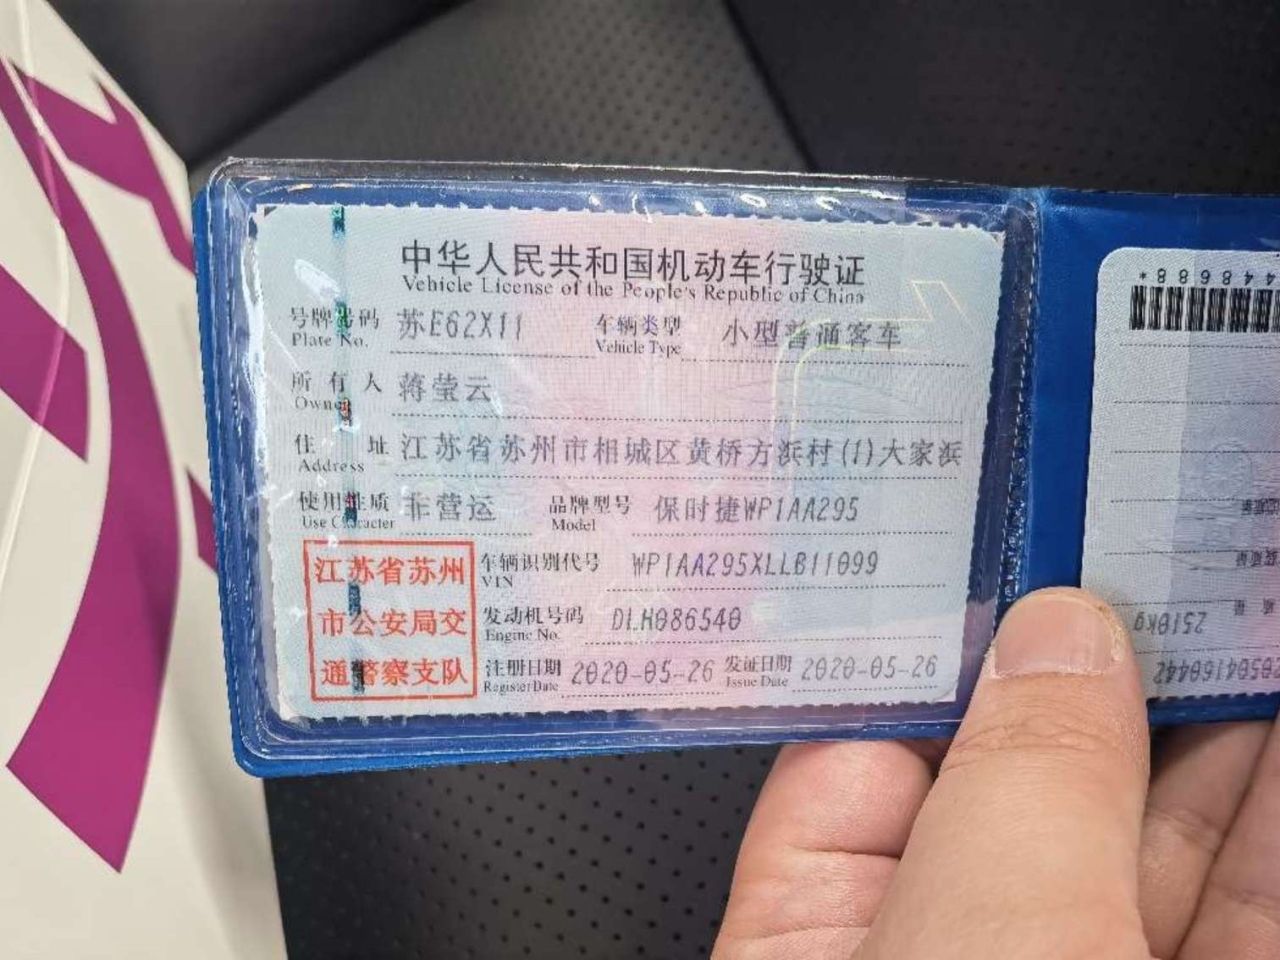 中华人民共和国机动车行驶证
Vehicle License of the People's Republic of China
号牌号码 苏E62X11 车辆类型 小型普通客车
Plate No. Vehicle Type
所有人 蒋莹云
Owner
住址 江苏省苏州市相城区黄桥方浜村(1)大家浜
Address
使用性质 非营运 品牌型号 保时捷WP1AA295
Use Character Model
江苏省苏州
市公安局交
通警察支队
车辆识别代号 WP1AA295XLLB11099
VIN
发动机号码 DLH086540
Engine No.
注册日期 2020-05-26 发证日期 2020-05-26
Register Date Issue Date
2510kg